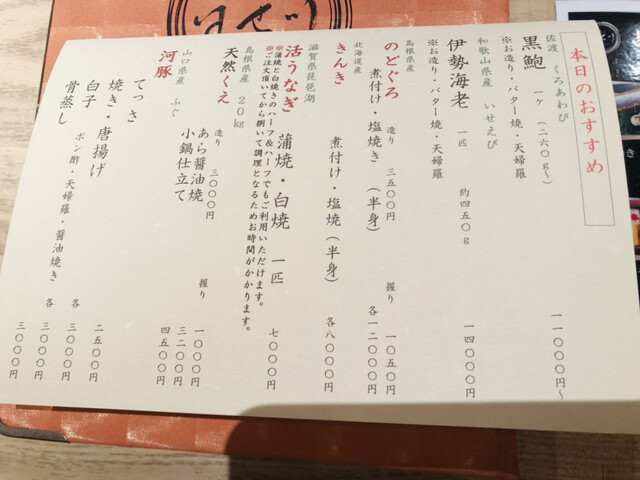 本日のおすすめ
佐渡 くろあわび
黒鮑 一ヶ (二六〇g〜) 一一〇〇〇円〜
※お造り・バター焼・天婦羅
和歌山県産 いせえび
伊勢海老 一匹 約四五〇g 一四〇〇〇円
※お造り・バター焼・天婦羅
島根県産
のどぐろ 造り 三五〇〇円 握り 一〇五〇円
煮付け・塩焼き (半身) 各一二〇〇〇円
北海道産
きんき 煮付け・塩焼 (半身) 各八〇〇〇円
滋賀県琵琶湖
活うなぎ 蒲焼・白焼 一匹 七〇〇〇円
※蒲焼と白焼きのハーフ&ハーフでもご利用いただけます。
※ご注文頂いてから捌いて調理となるためお時間がかかります。
島根県産 20kg
天然くえ 造り 三〇〇〇円 握り 一〇〇〇円
あら醤油焼 三二〇〇円
小鍋仕立て 四五〇〇円
山口県産 ふぐ
河豚
てっさ 二五〇〇円
焼き・唐揚げ 各 三〇〇〇円
白子 ポン酢・天婦羅・醤油焼き 各 三〇〇〇円
骨蒸し 三〇〇〇円